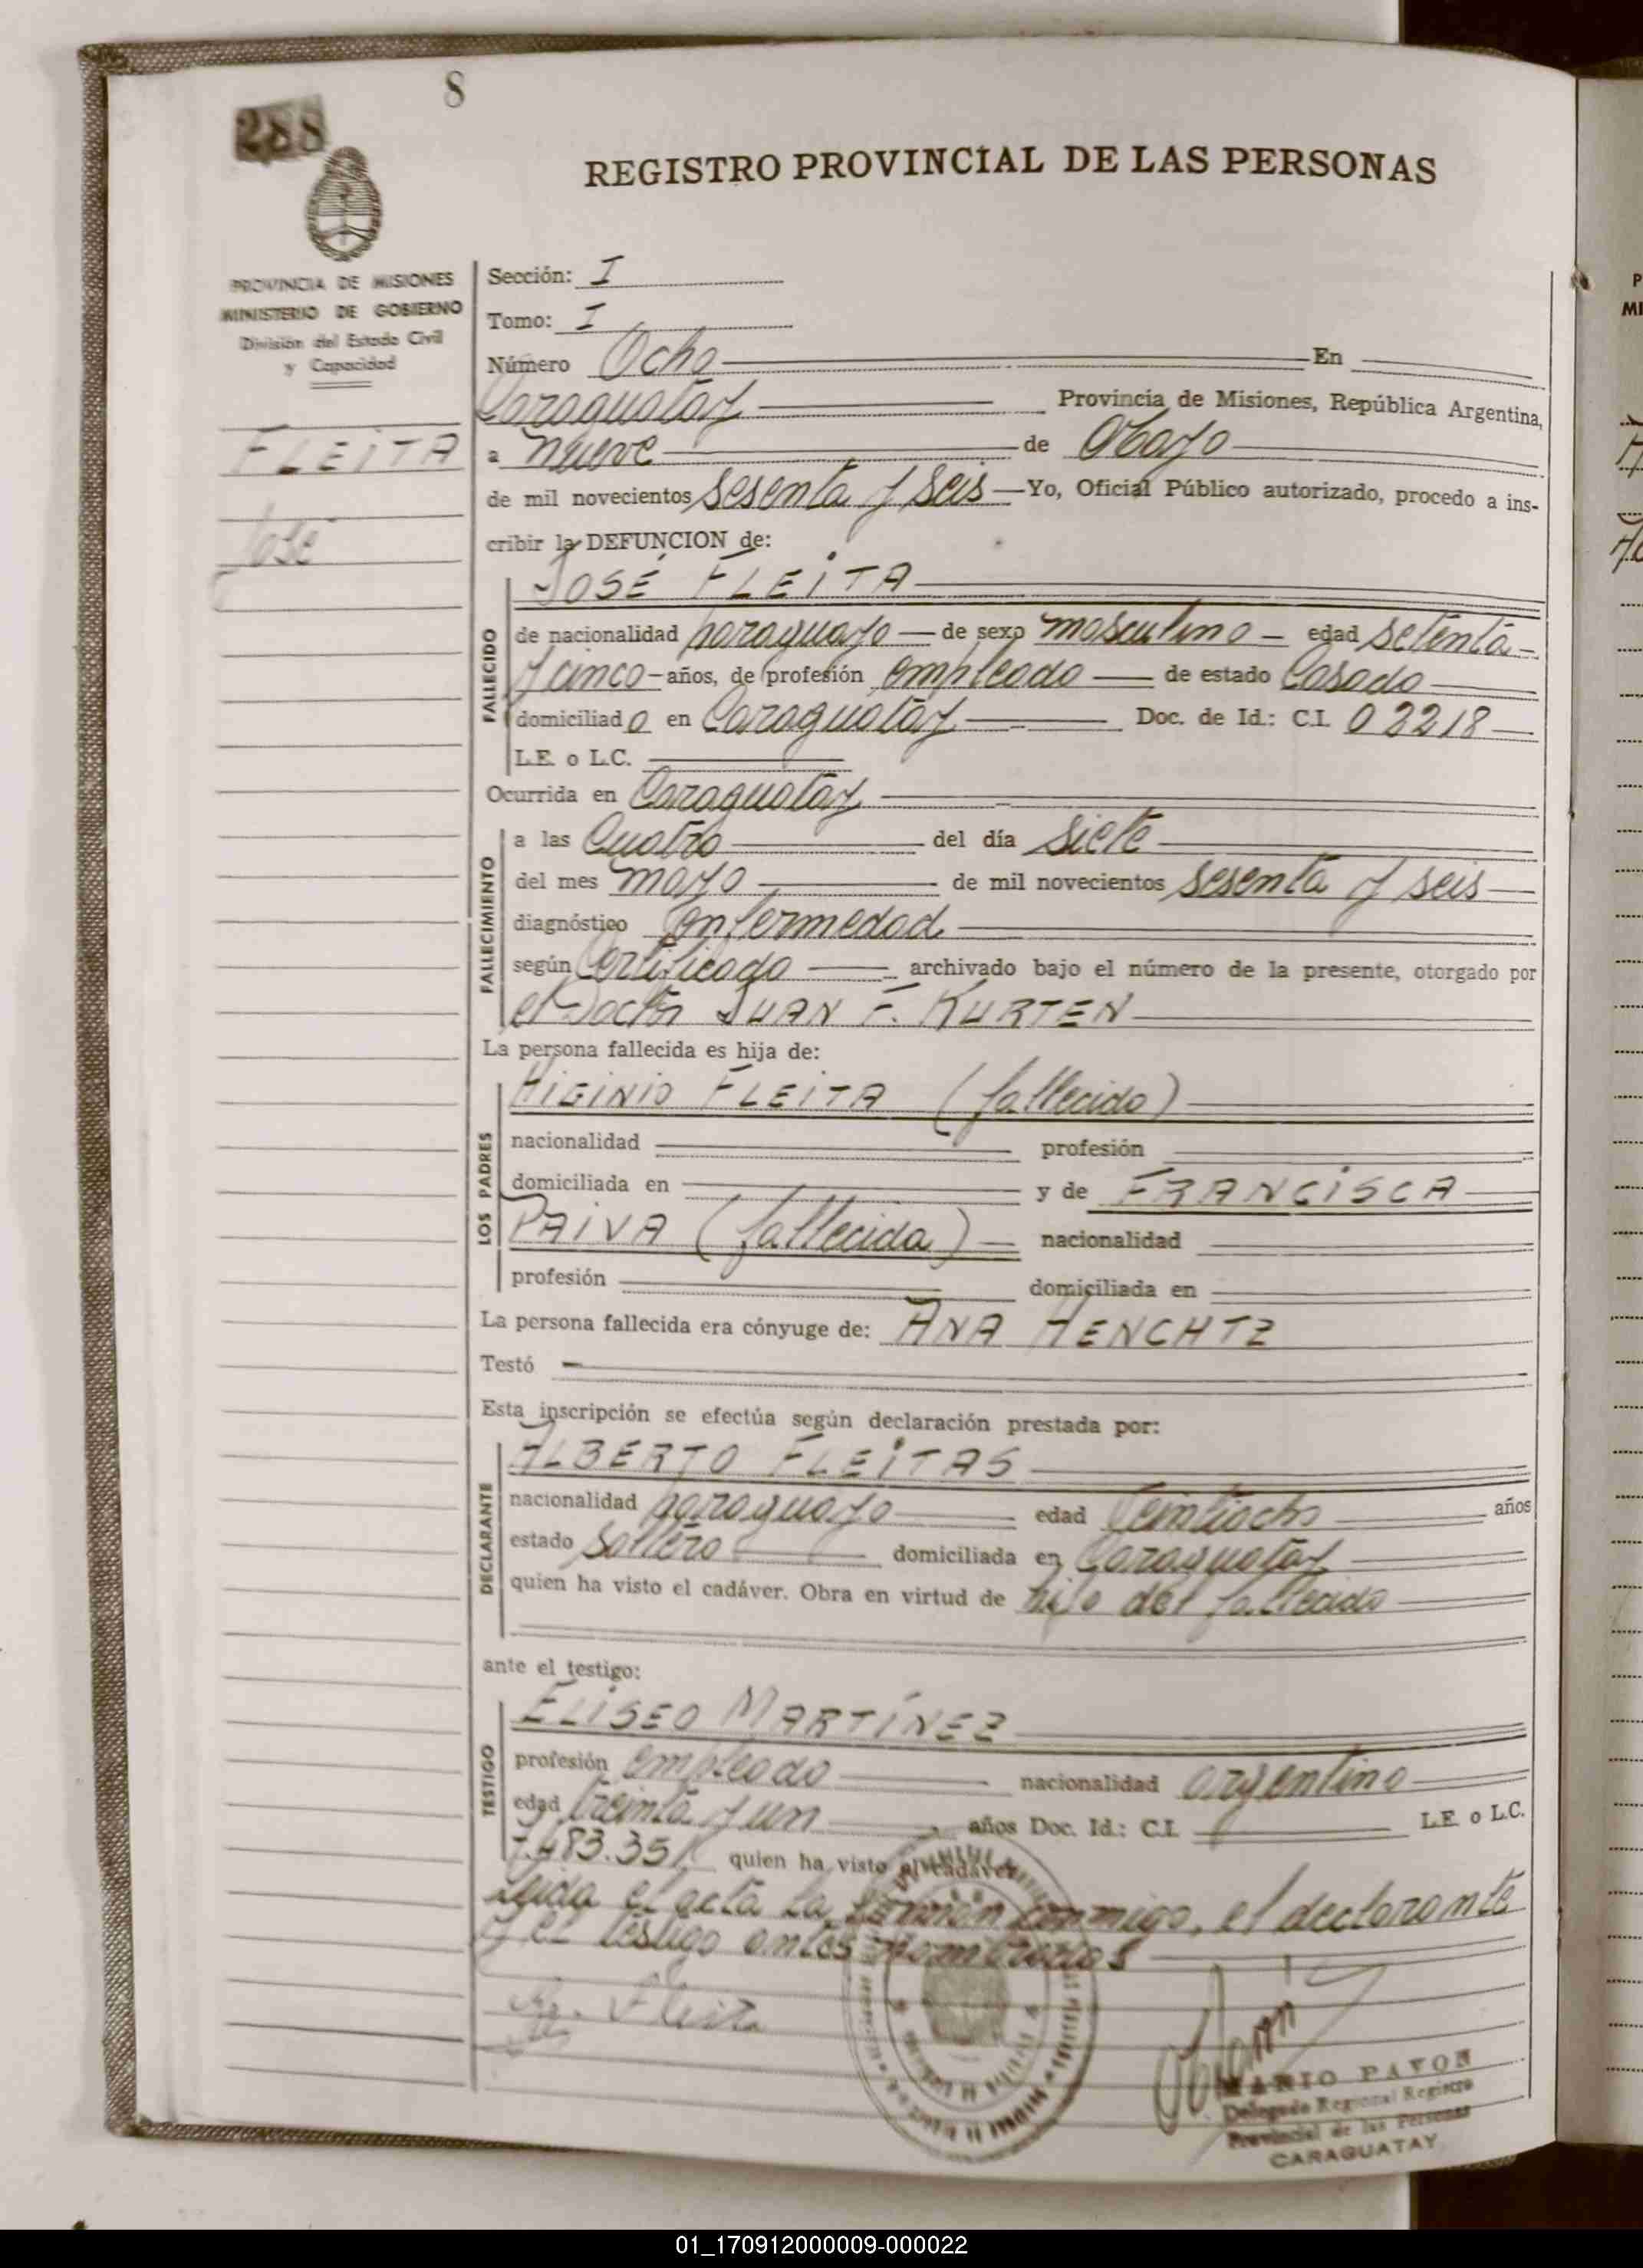 8
288
REGISTRO PROVINCIAL DE LAS PERSONAS
PROVINCIA DE MISIONES
MINISTERIO DE GOBIERNO
División del Estado Civil
y Capacidad
FLEITA
José
Sección: I
Tomo: I
Número Ocho En
Caraguatay Provincia de Misiones, República Argentina,
a nueve de Mayo
de mil novecientos sesenta y seis Yo, Oficial Público autorizado, procedo a ins-
cribir la DEFUNCION de:
JOSÉ FLEITA
FALLECIDO
de nacionalidad paraguayo de sexo masculino edad setenta
y cinco años, de profesión empleado de estado Casado
domiciliado en Caraguatay Doc. de Id.: C.I. 02218
L.E. o L.C.
Ocurrida en Caraguatay
FALLECIMIENTO
a las Cuatro del día siete
del mes mayo de mil novecientos sesenta y seis
diagnóstico enfermedad
según Certificado archivado bajo el número de la presente, otorgado por
el Doctor JUAN F. KURTEN
La persona fallecida es hija de:
LOS PADRES
HIGINIO FLEITA (fallecido)
nacionalidad profesión
domiciliada en y de FRANCISCA
PAIVA (fallecida) nacionalidad
profesión domiciliada en
La persona fallecida era cónyuge de: ANA HENCHTZ
Testó
Esta inscripción se efectúa según declaración prestada por:
DECLARANTE
ALBERTO FLEITAS
nacionalidad paraguayo edad Veintiocho años
estado soltero domiciliada en Caraguatay
quien ha visto el cadáver. Obra en virtud de hijo del fallecido
ante el testigo:
TESTIGO
ELISEO MARTÍNEZ
profesión empleado nacionalidad argentino
edad treinta y un años Doc. Id.: C.I. L.E. o L.C.
7.483.351 quien ha visto el cadáver
Leida el acta la firman conmigo, el declarante
y el testigo antes nombrados
MARIO PAVON
Delegado Regional Registro
Provincial de las Personas
CARAGUATAY
01_170912000009-000022